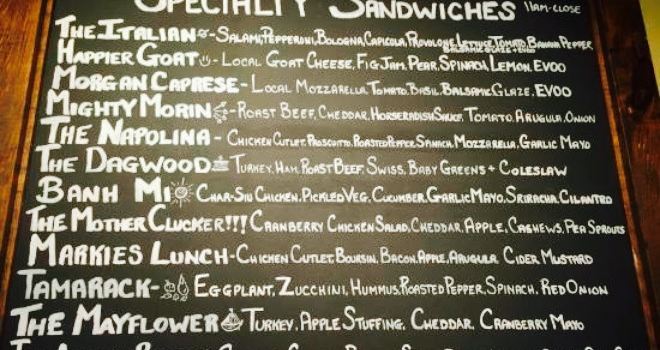 Specialty Sandwiches 11am-close
The Italian - Salami, Pepperoni, Bologna, Capicola, Provolone, Lettuce, Tomato, Banana Pepper,
Balsamic Glaze + EVOO
Happier Goat - Local Goat Cheese, Fig Jam, Pear, Spinach, Lemon, EVOO
Morgan Caprese - Local Mozzarella, Tomato, Basil, Balsamic Glaze, EVOO
Mighty Morin - Roast Beef, Cheddar, Horseradish Sauce, Tomato, Arugula, Onion
The Napolina - Chicken Cutlet, Prosciutto, Roasted Pepper, Spinach, Mozzarella, Garlic Mayo
The Dagwood Turkey, Ham, Roast Beef, Swiss, Baby Greens + Coleslaw
Banh Mi Char-Siu Chicken, Pickled Veg, Cucumber, Garlic Mayo, Sriracha, Cilantro
The Mother Clucker!!! Cranberry Chicken Salad, Cheddar, Apple, Cashews, Pea Sprouts
Markies Lunch - Chicken Cutlet, Boursin, Bacon, Apple, Arugula, Cider, Mustard
Tamarack - Eggplant, Zucchini, Hummus, Roasted Pepper, Spinach, Red Onion
The Mayflower Turkey, Apple Stuffing, Cheddar, Cranberry Mayo